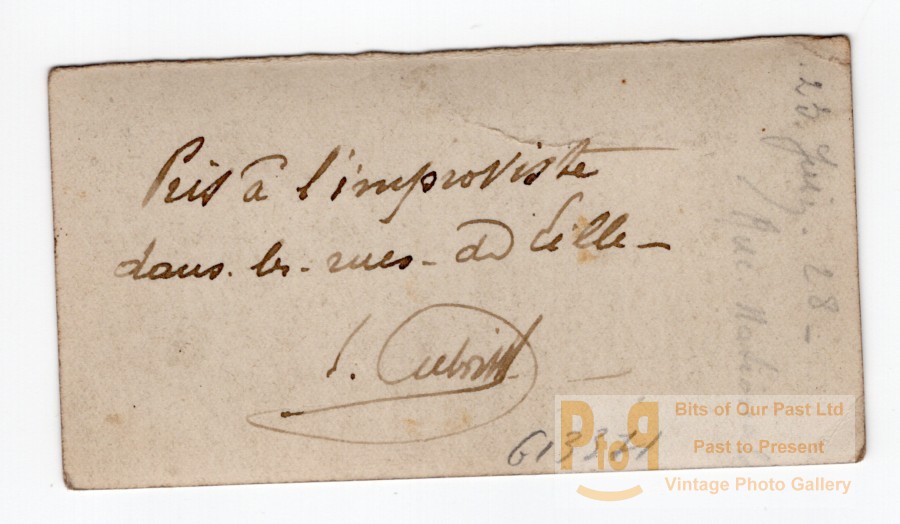 Pris à l'improviste
dans les rues de Lille
613371
23. Juin. 28 -
Rue
PtoP
Bits of Our Past Ltd
Past to Present
Vintage Photo Gallery